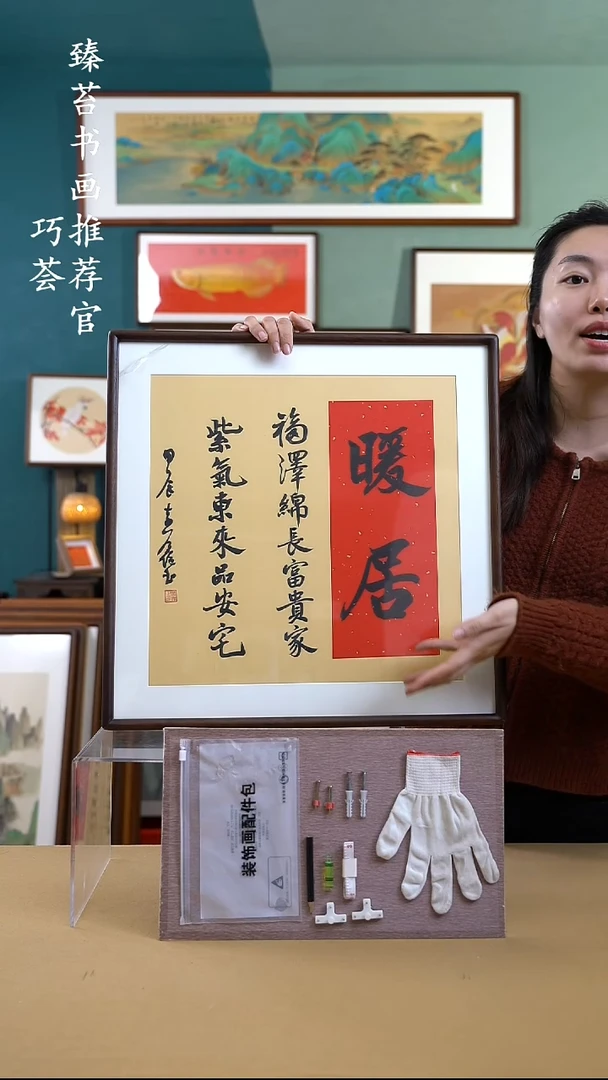 臻苔书画推荐官
巧荟
暖居
福澤綿長富貴家
紫氣東來品安宅
甲辰
装饰画配件包